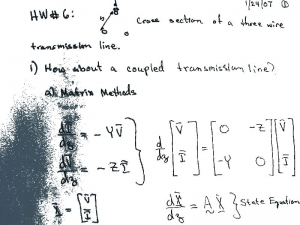 1/24/07 ①
HW#6: Cross section of a three wire
transmission line.
1) How about a coupled transmission line?
a) Matrix Methods
dĪ/dz = -YV̄
dV̄/dz = -ZĪ
d/dz [V̄ Ī] = [0 -Z -Y 0] [V̄ Ī]
X̄ = [V̄ Ī]
dX̄/dz = A X̄ } State Equation